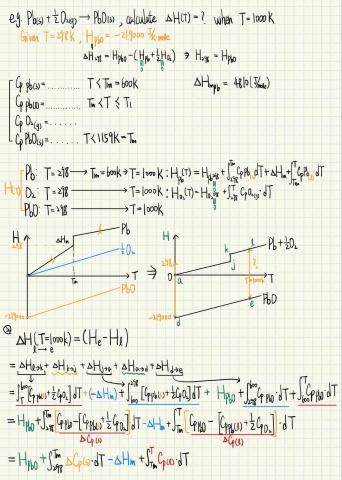 e.g. Pb(s) + ½O₂(g) → PbO(s), calculate ΔH(T)=? when T=1000K
Given T=298K, H_PbO = -219000 J/mole
ΔH₂₉₈ = H_PbO - (H_Pb + ½H_O₂) ⇒ H₂₉₈ = H_PbO
0 0
Cp Pb(s) = ........... T < Tm = 600K ΔHm,Pb = 4810 (J/mole)
Cp Pb(l) = ........... Tm < T < T₁
Cp O₂(g) = ......
Cp PbO(s) = ...... T < 1159K = Tm
Pb: T=298 → Tm=600K → T=1000K : H_Pb(T) = H_Pb,298 + ∫₂₉₈^Tm Cp Pb(s) dT + ΔHm + ∫Tm^T Cp Pb(l) dT
H(T) O₂: T=298 → T=1000K : H_O₂(T) = H_O₂,298 + ∫₂₉₈^T Cp O₂(g) · dT
PbO: T=298 → T=1000K
H Pb
ΔHm
½O₂
298
Tm T
PbO
-219000
⇒
H
l Pb + ½O₂
k
j
298
0 a T
?
T=1000K
PbO
e
d
-219000
@
ΔH(T=1000K) = (He - Hl)
l → e
= ΔHl→k + ΔHk→j + ΔHj→a + ΔHa→d + ΔHd→e
= ∫T^600 [Cp Pb(l) + ½Cp O₂] dT + (-ΔHm) + ∫600^298 [Cp Pb(s) + ½Cp O₂] dT + H_PbO + ∫298^600 Cp PbO dT + ∫600^T Cp PbO · dT
= H_PbO + ∫298^Tm [Cp PbO - [Cp Pb(s) + ½Cp O₂]] dT - ΔHm + ∫Tm^T [Cp PbO - [Cp Pb(l) + ½Cp O₂]] · dT
ΔCp(s) ΔCp(l)
= H_PbO + ∫298^Tm ΔCp(s) · dT - ΔHm + ∫Tm^T Cp(l) · dT